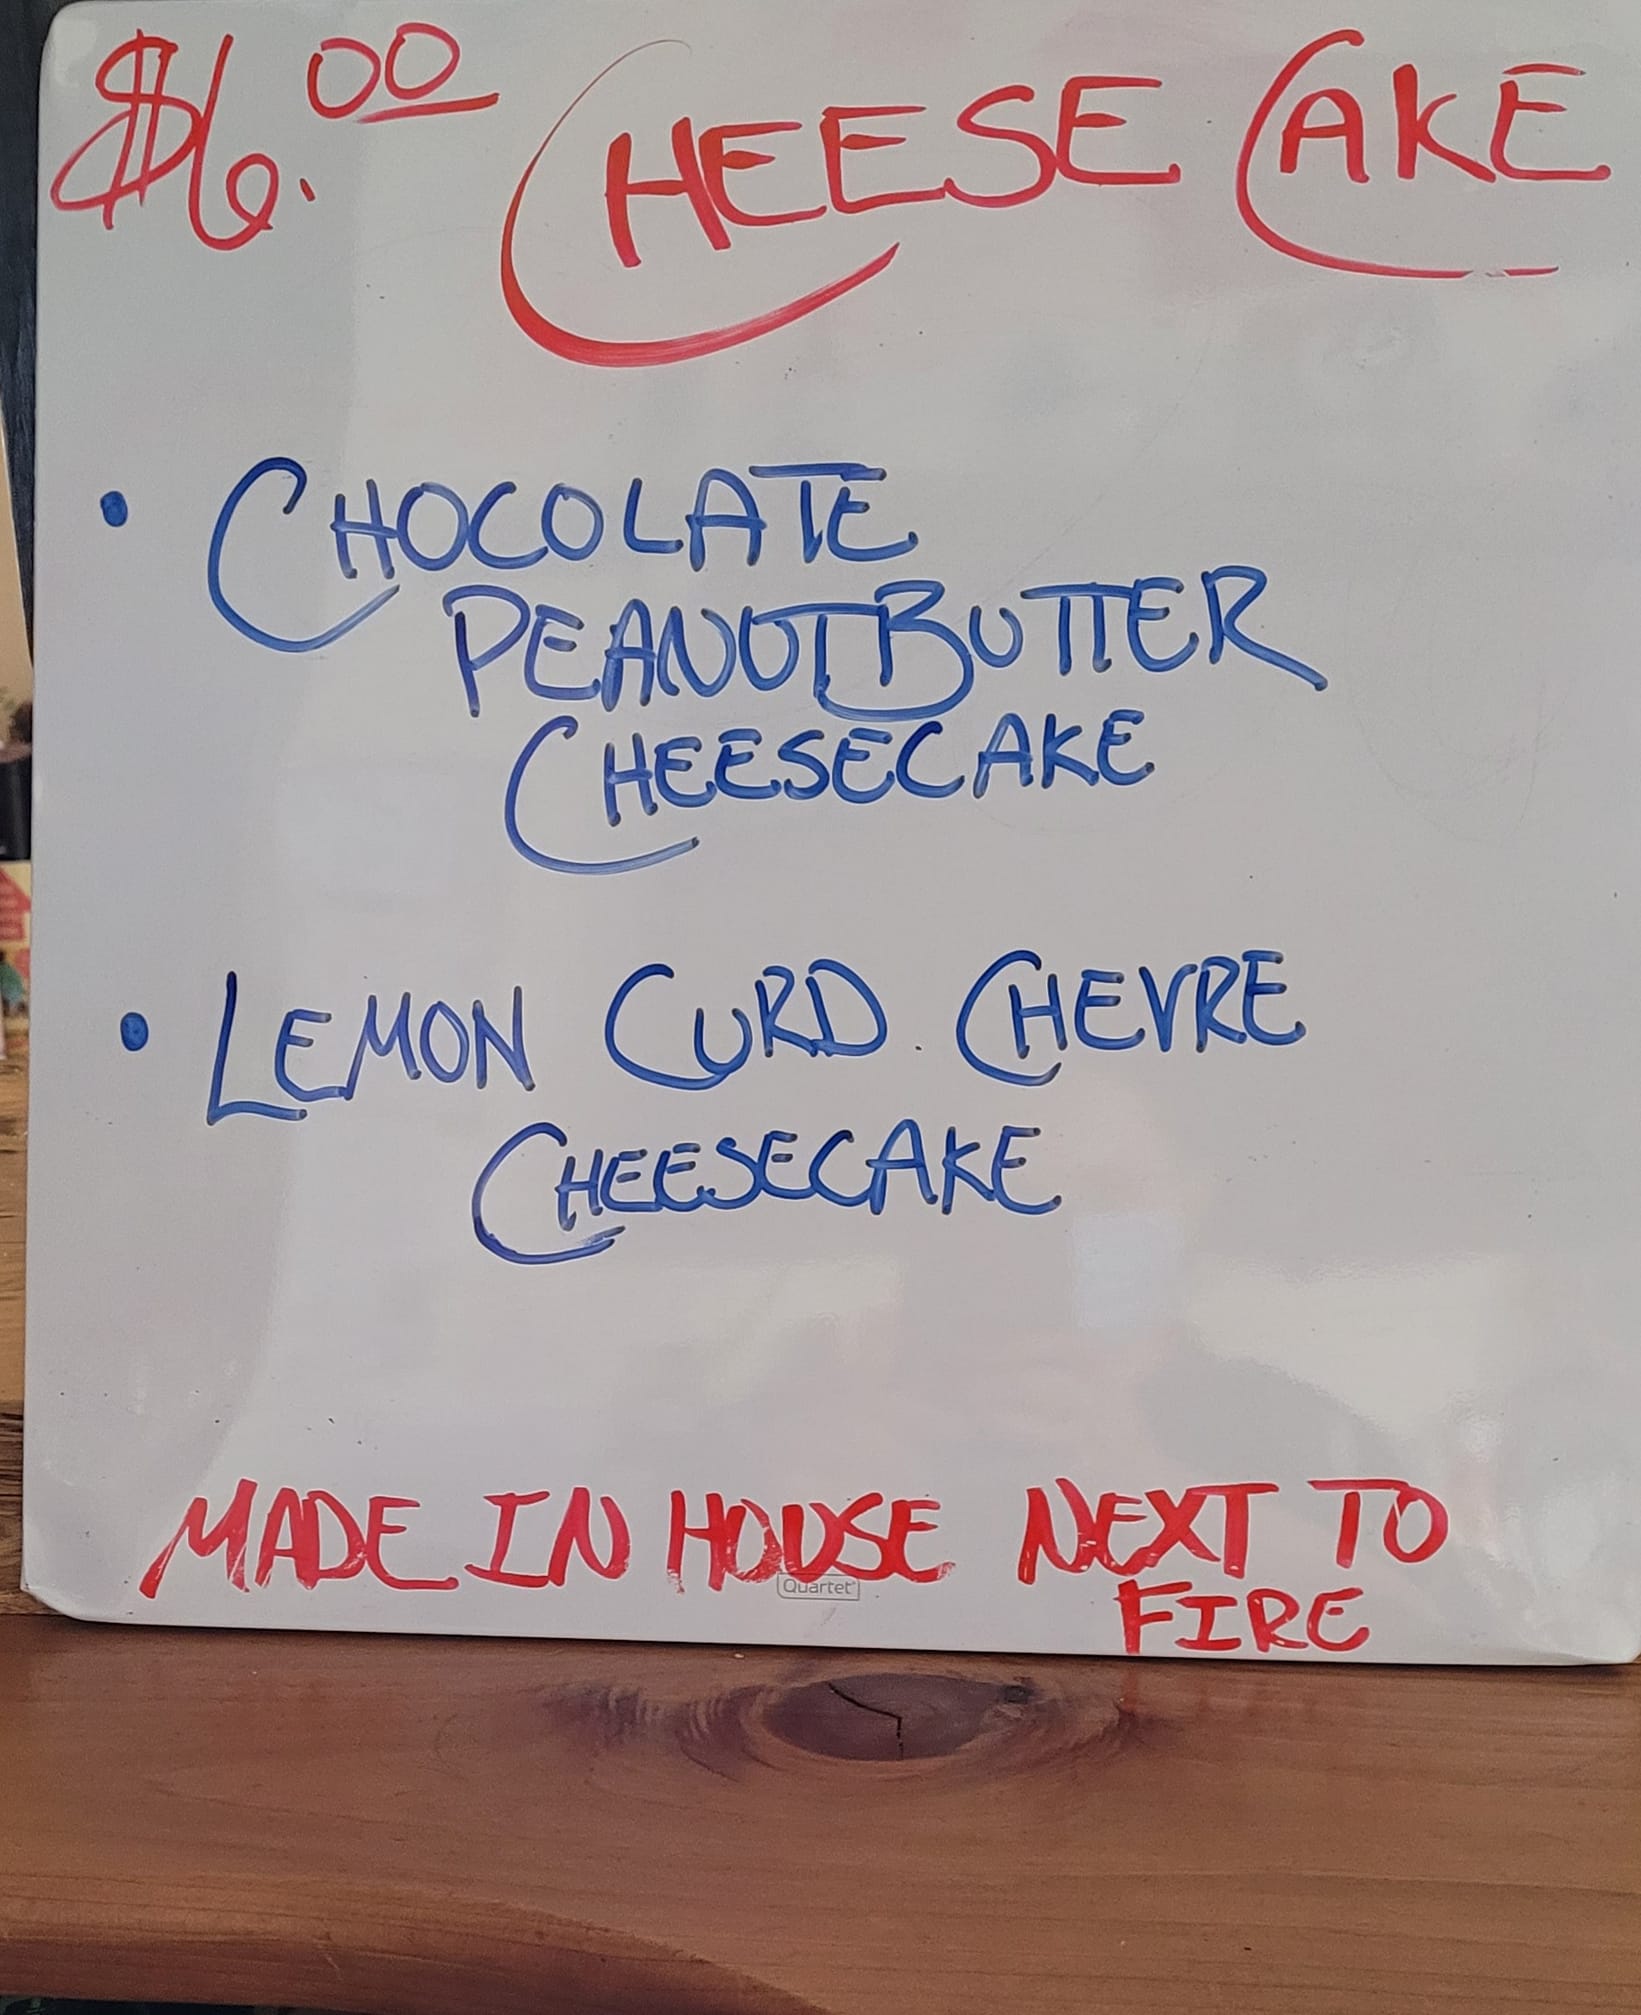 $6.00 CHEESE CAKE
• CHOCOLATE
PEANUT BUTTER
CHEESECAKE
• LEMON CURD CHEVRE
CHEESECAKE
MADE IN HOUSE NEXT TO
Quartet
FIRE